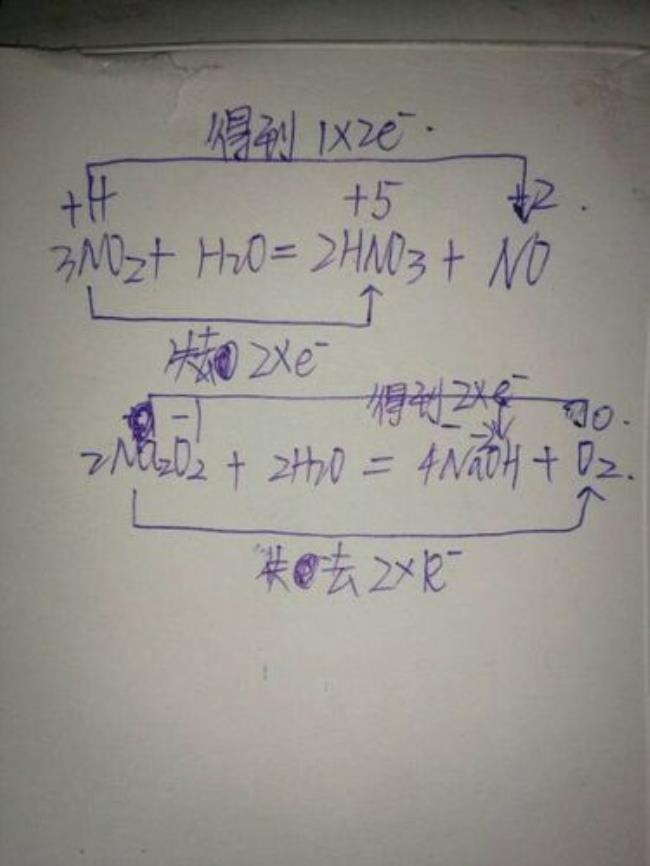 得到 1×2e⁻.
+4 +5 +2.
3NO₂ + H₂O = 2HNO₃ + NO
失去 2×e⁻
得到 2×e⁻
-1 -2 0.
2Na₂O₂ + 2H₂O = 4NaOH + O₂.
失去 2×e⁻